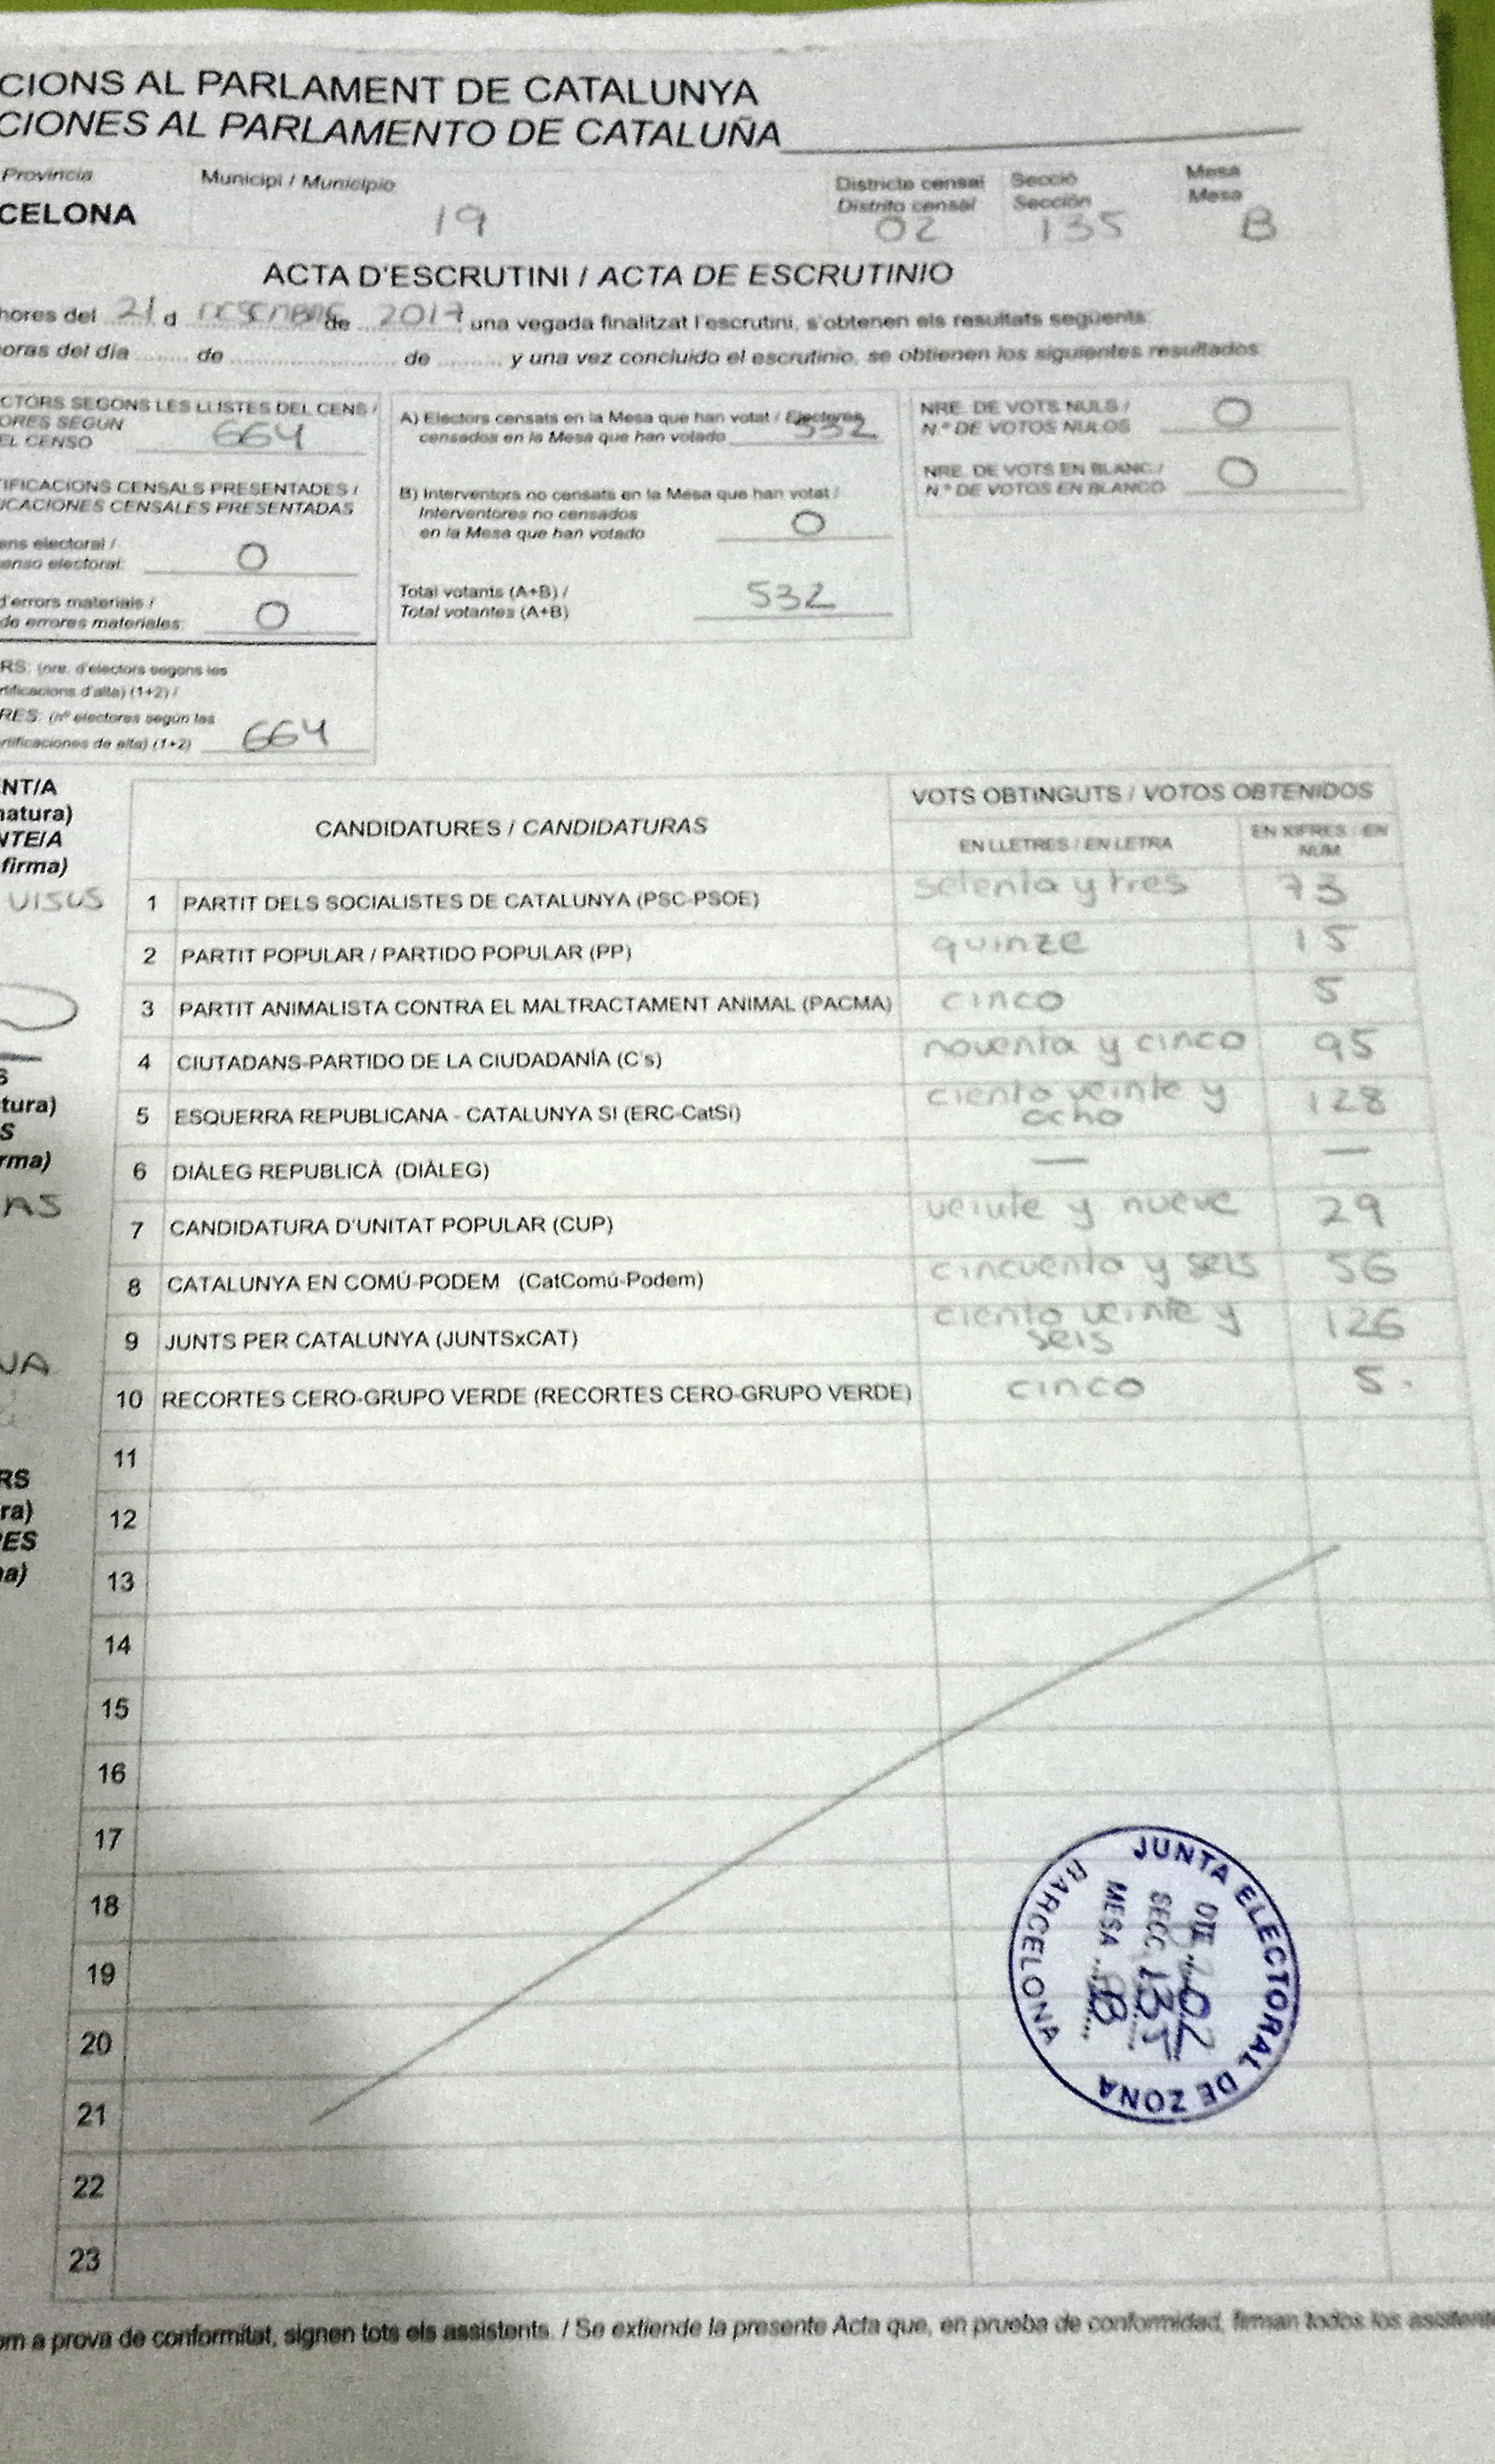 CIONS AL PARLAMENT DE CATALUNYA
CIONES AL PARLAMENTO DE CATALUÑA
Provincia Municipi / Municipio Districte censal Secció Mesa
Distrito censal Sección Mesa
CELONA 19 02 135 B
ACTA D'ESCRUTINI / ACTA DE ESCRUTINIO
hores del 21 d de 2017 una vegada finalitzat l'escrutini, s'obtenen els resultats següents:
oras del día ........ de .......................... de .......... y una vez concluido el escrutinio, se obtienen los siguientes resultados
CTORS SEGONS LES LLISTES DEL CENS /
ORES SEGÚN
EL CENSO 664
IFICACIONS CENSALS PRESENTADES /
ICACIONES CENSALES PRESENTADAS
ens electoral /
enso electoral: 0
d'errors materials /
de errores materiales: 0
RS: (nre. d'electors segons les
rtificacions d'alta) (1+2) /
RES: (nº electores según las
rtificaciones de alta) (1+2) 664
A) Electors censats en la Mesa que han votat / Electores
censados en la Mesa que han votado 532
B) Interventors no censats en la Mesa que han votat /
Interventores no censados
en la Mesa que han votado 0
Total votants (A+B) /
Total votantes (A+B) 532
NRE. DE VOTS NULS /
N.º DE VOTOS NULOS 0
NRE. DE VOTS EN BLANC /
N.º DE VOTOS EN BLANCO 0
NT/A
natura)
NTE/A
firma)
VISUS
S
tura)
S
rma)
AS
NA
RS
ra)
RES
na)
CANDIDATURES / CANDIDATURAS VOTS OBTINGUTS / VOTOS OBTENIDOS
EN LLETRES / EN LETRA EN XIFRES / EN
NUM.
1 PARTIT DELS SOCIALISTES DE CATALUNYA (PSC-PSOE) setenta y tres 73
2 PARTIT POPULAR / PARTIDO POPULAR (PP) quinze 15
3 PARTIT ANIMALISTA CONTRA EL MALTRACTAMENT ANIMAL (PACMA) cinco 5
4 CIUTADANS-PARTIDO DE LA CIUDADANÍA (C's) noventa y cinco 95
5 ESQUERRA REPUBLICANA - CATALUNYA SI (ERC-CatSí) ciento veinte y
ocho 128
6 DIÀLEG REPUBLICÀ (DIÀLEG) — —
7 CANDIDATURA D'UNITAT POPULAR (CUP) veinte y nueve 29
8 CATALUNYA EN COMÚ-PODEM (CatComú-Podem) cincuenta y seis 56
9 JUNTS PER CATALUNYA (JUNTSxCAT) ciento veinte y
seis 126
10 RECORTES CERO-GRUPO VERDE (RECORTES CERO-GRUPO VERDE) cinco 5.
11
12
13
14
15
16
17
18
19
20
21
22
23
JUNTA ELECTORAL DE ZONA
BARCELONA
DTE. 02
SECC. 135
MESA B
om a prova de conformitat, signen tots els assistents. / Se extiende la presente Acta que, en prueba de conformidad, firman todos los asistente